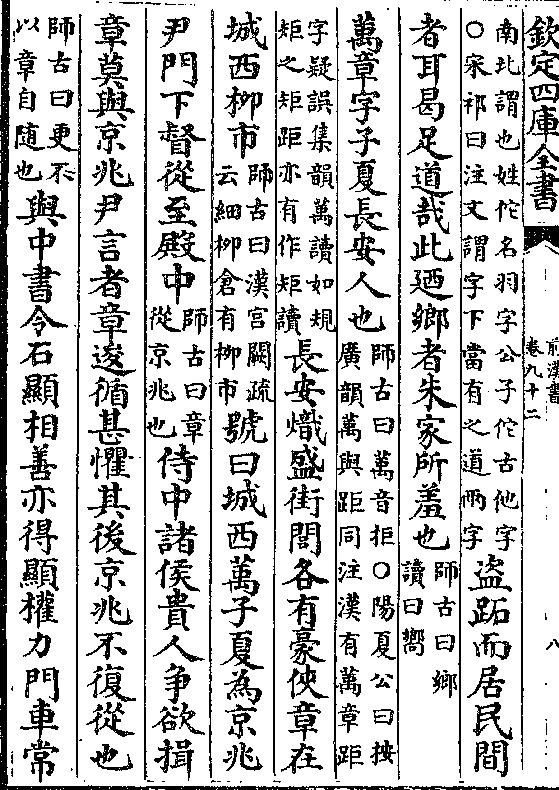 欽定四庫全書
前漢書
卷九十二
八
南北謂也姓佗名羽字公子佗古他字
○宋祁曰注文謂字下當有之道兩字
盜跖而居民間
者耳曷足道哉此廼鄉者朱家所羞也
師古曰鄉
讀曰嚮
萬章字子夏長安人也
師古曰萬音拒○陽夏公曰按
廣韻萬與距同注漢有萬章距
字疑誤集韻萬讀如規
矩之矩距亦有作矩讀
長安熾盛街閭各有豪俠章在
城西栁市
師古曰漢宮闕疏
云細栁倉有栁市
號曰城西萬子夏為京兆
尹門下督從至殿中
師古曰章
從京兆也
侍中諸侯貴人争欲揖
章莫與京兆尹言者章逡循甚懼其後京兆不復從也
師古曰更不
以章自随也
與中書令石顯相善亦得顯權力門車常